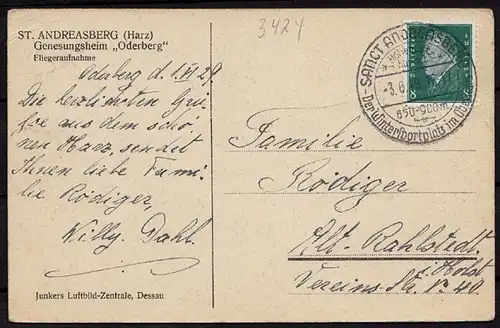 3424
ST. ANDREASBERG (Harz)
Genesungsheim „Oderberg"
Fliegeraufnahme
Oderberg d. 1. VI 29.
Die herzlichsten Grü-
ße aus dem schö-
nen Harz, sendet
Ihnen liebe Fami-
lie Rödiger,
Willy Dahl.
Junkers Luftbild-Zentrale, Dessau
SANCT ANDREASBERG
-3.6.
650-900m
Der Wintersportplatz im Oberharz
8 8
Familie
Rödiger
Alt-Rahlstedt
i. Holst
Vereins Str. No 40.